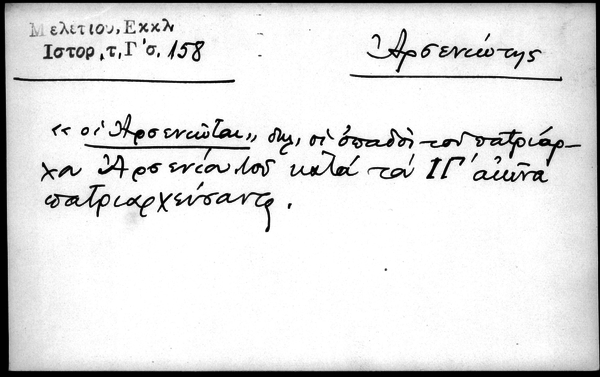 Μελετίου, Εκκλ
Ιστορ, τ, Γ΄ σ. 158
Ἀρσενιώτης
«οἱ Ἀρσενιῶται» δηλ, οἱ ὀπαδοὶ τοῦ πατριάρ-
χα Ἀρσενίου τοῦ κατά τόν ΙΓ΄ αἰῶνα
πατριαρχεύσαντος.